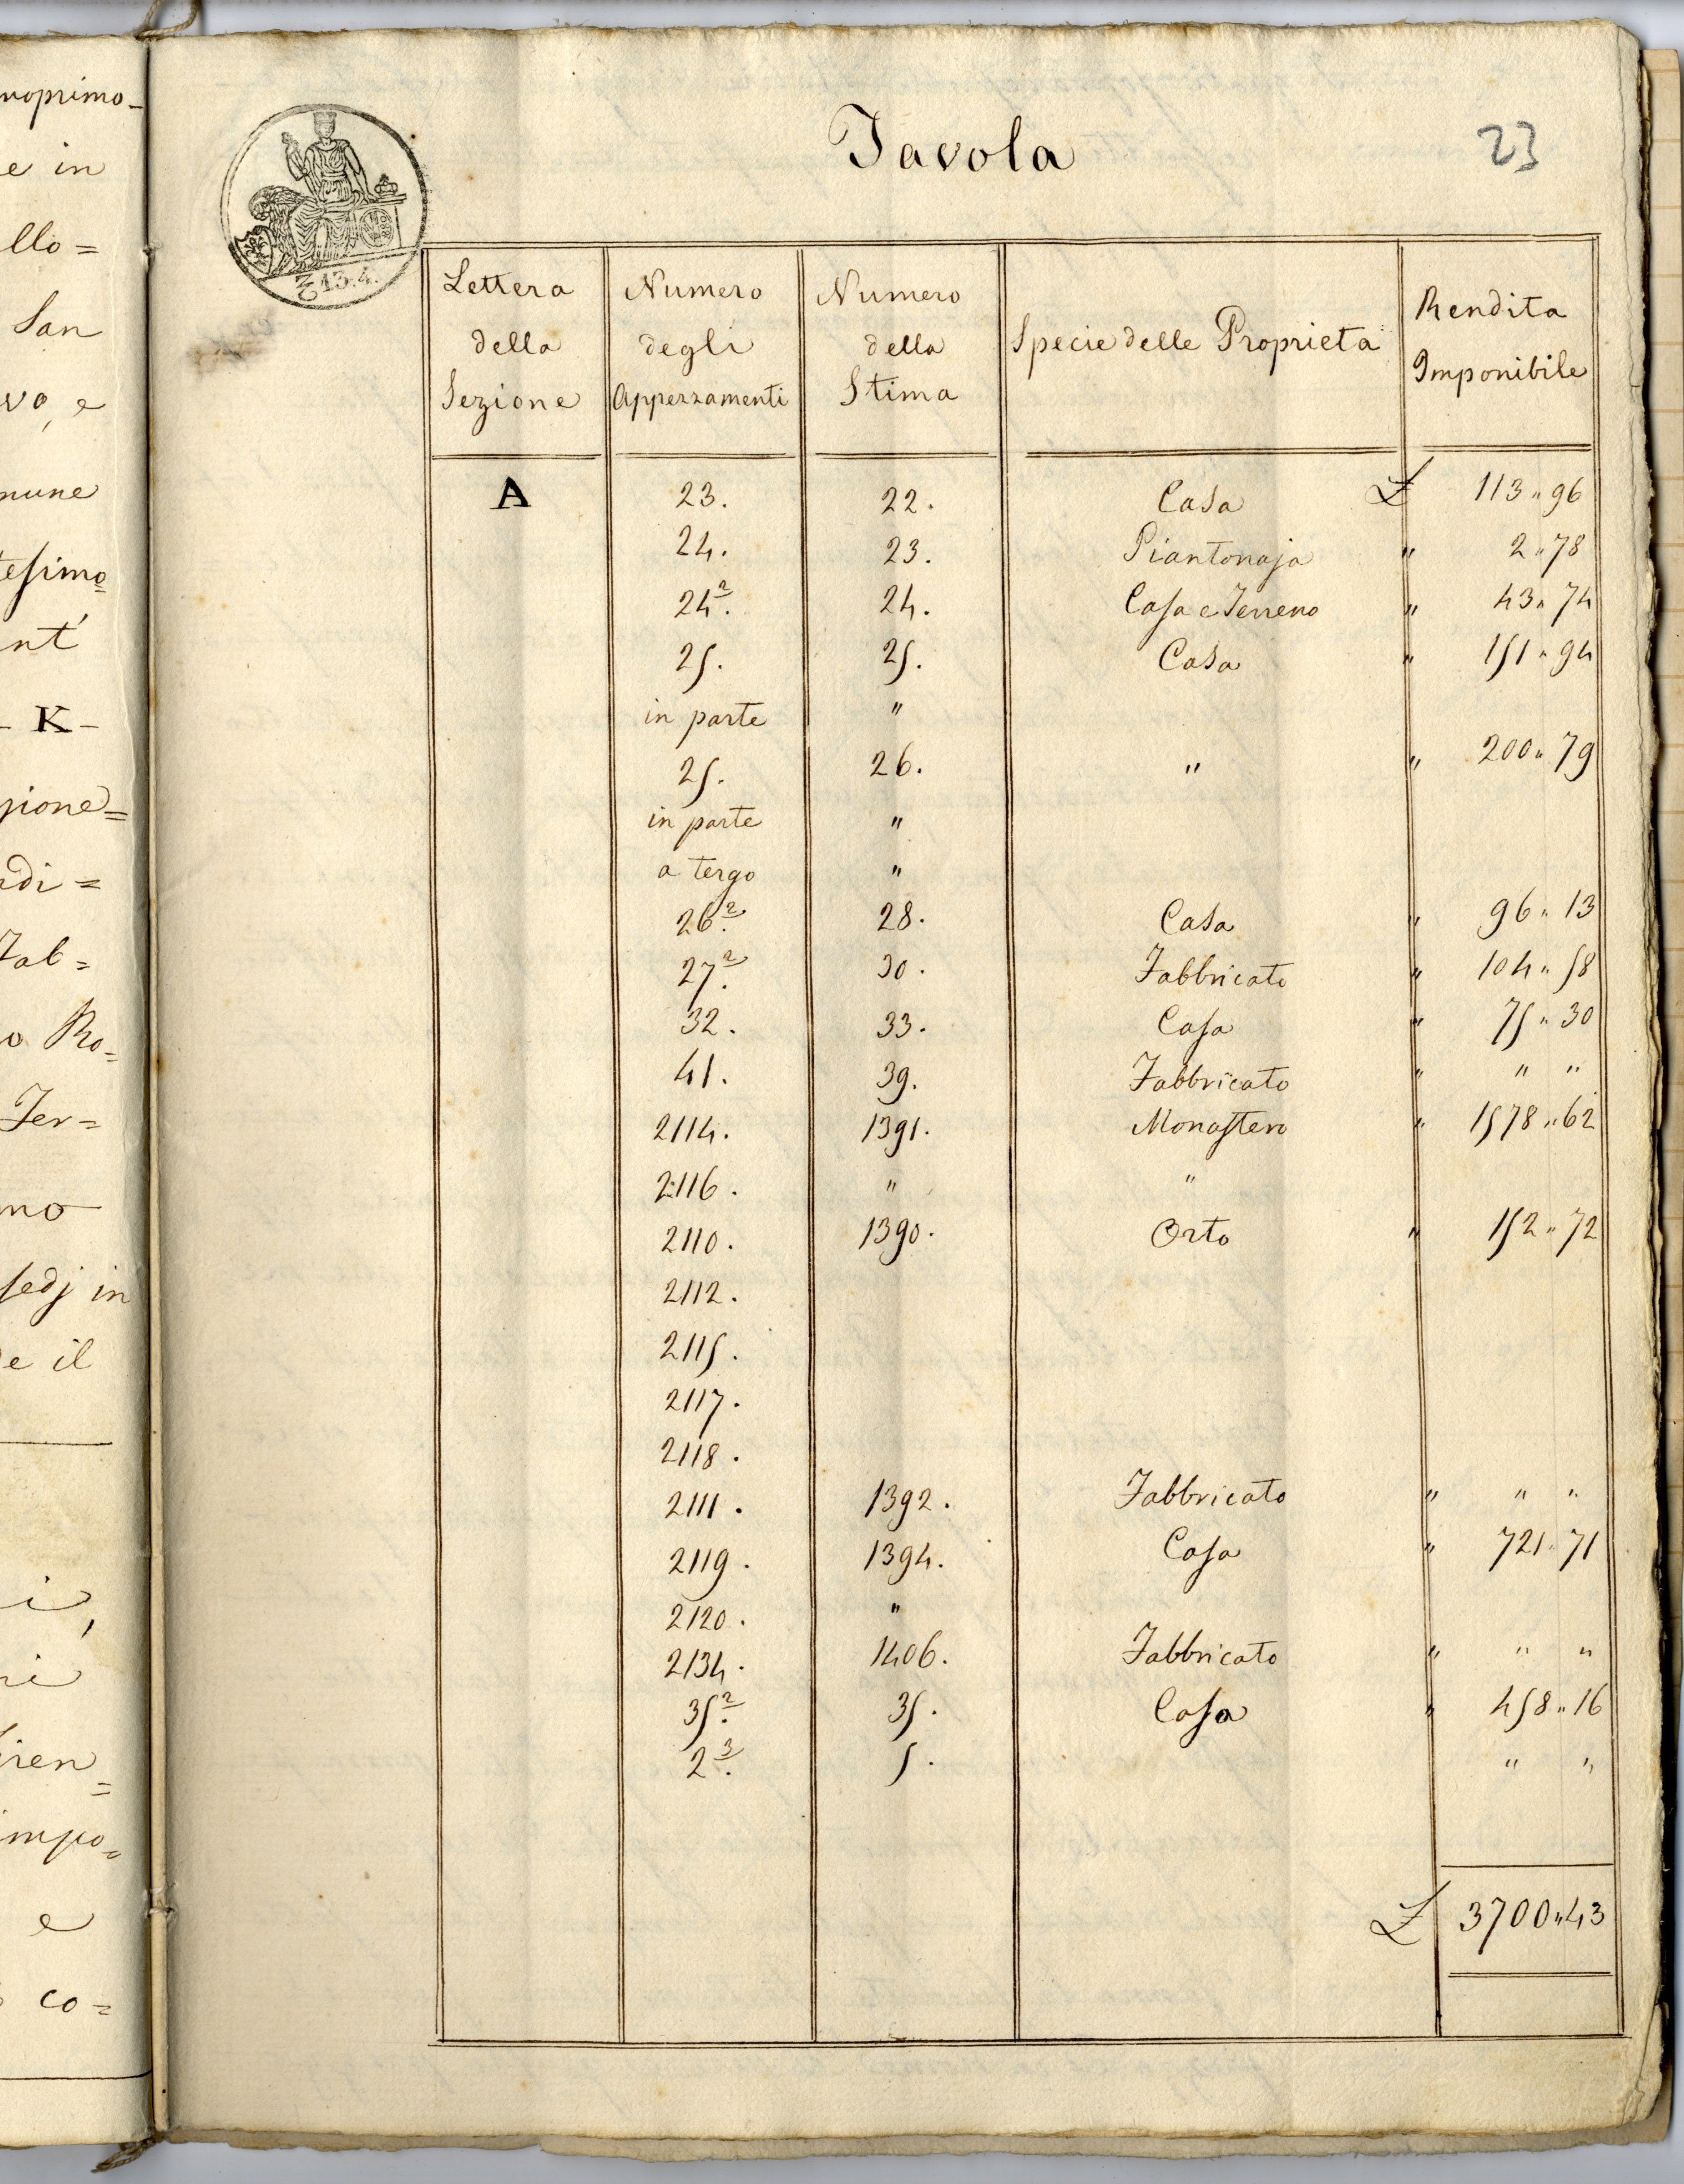 noprimo-
e in
llo=
San
vo, e
mune
tesimo
nt'
- K -
gione=
rdi=
Fab=
o Ro=
Ter=
mo
sedj in
e il
i,
ri
iren=
impo=
e
co=
Tavola
23
£ 13.4.
Lettera della Sezione | Numero degli Appezzamenti | Numero della Stima | Specie delle Proprieta | Rendita Imponibile
A 23. 22. Casa £ 113 " 96
24. 23. Piantonaja " 2 " 78
24². 24. Casa e Terreno " 43 " 74
25. 25. Casa " 151 " 94
in parte "
25. 26. " " 200 " 79
in parte "
a tergo "
26². 28. Casa " 96 " 13
27². 30. Fabbricato " 104 " 58
32. 33. Casa " 75 " 30
41. 39. Fabbricato " " "
2114. 1391. Monastero " 1578 " 62
2116. " "
2110. 1390. Orto " 152 " 72
2112.
2115.
2117.
2118.
2111. 1392. Fabbricato " " "
2119. 1394. Casa " 721 " 71
2120. "
2134. 1406. Fabbricato " " "
35². 35. Casa " 458 " 16
2³. 5. " "
£ 3700 " 43